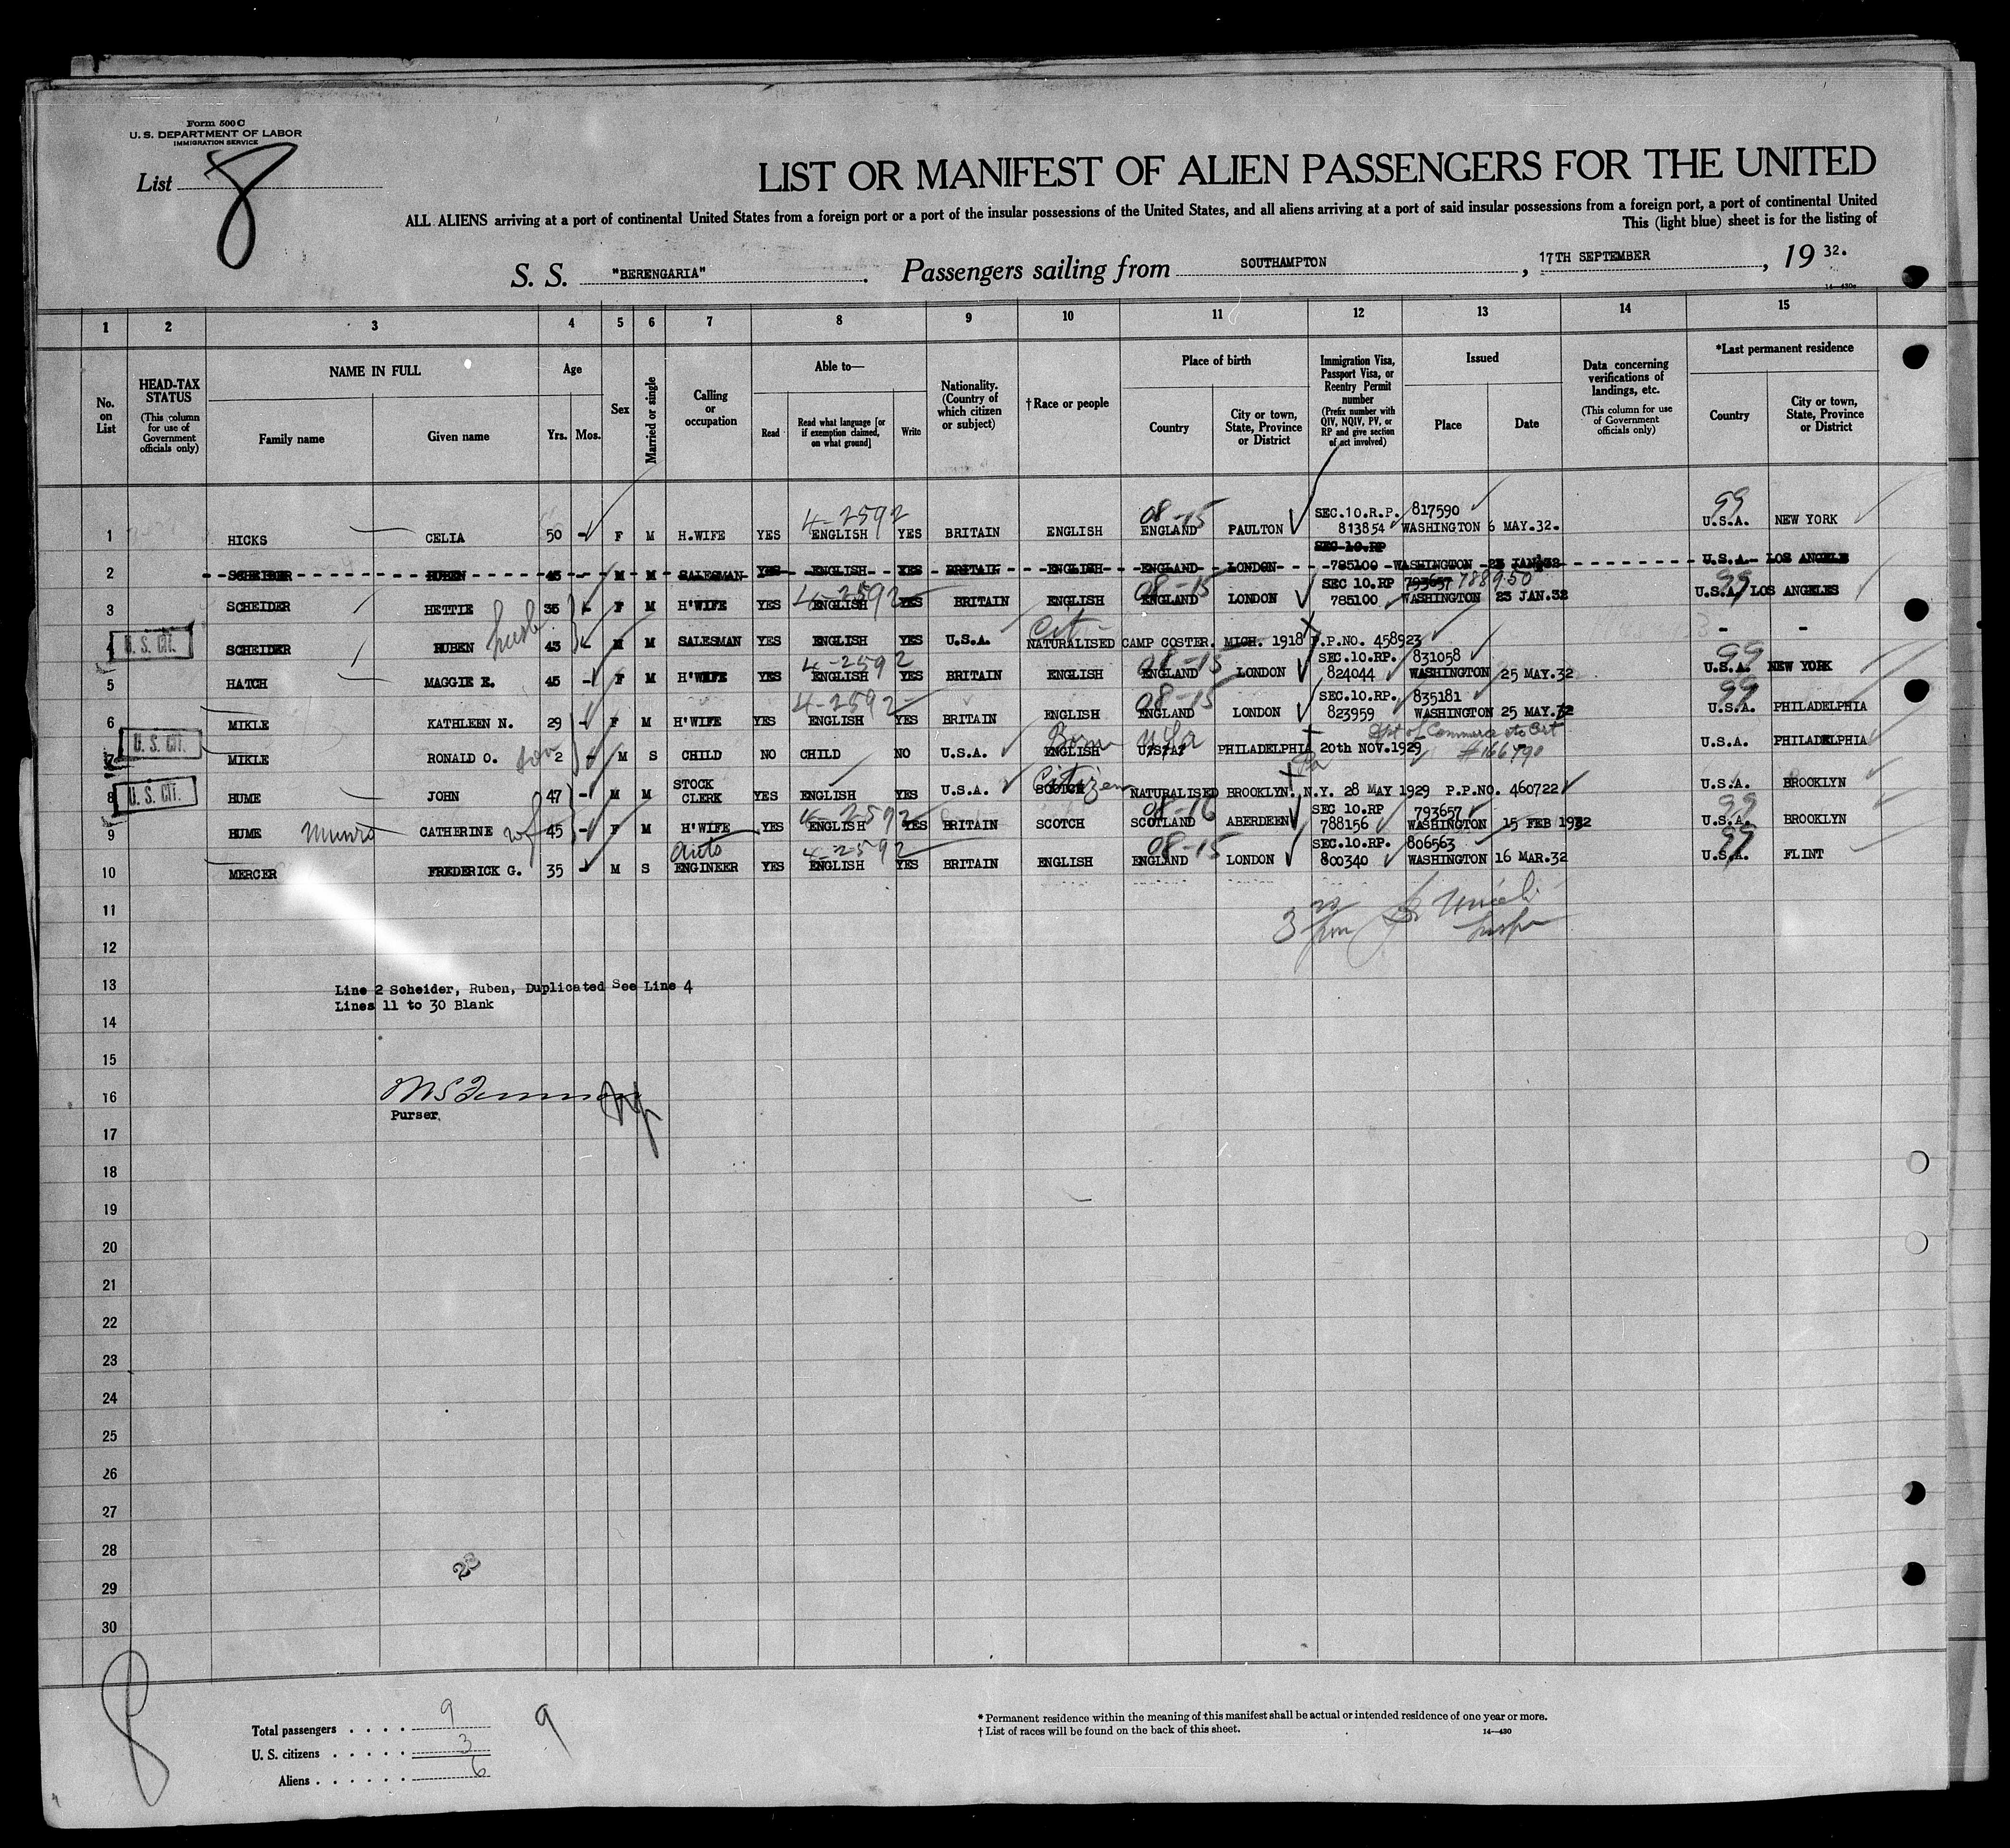 Form 500 C
U. S. DEPARTMENT OF LABOR
IMMIGRATION SERVICE
List 8
LIST OR MANIFEST OF ALIEN PASSENGERS FOR THE UNITED
ALL ALIENS arriving at a port of continental United States from a foreign port or a port of the insular possessions of the United States, and all aliens arriving at a port of said insular possessions from a foreign port, a port of continental United
This (light blue) sheet is for the listing of
S. S. "BERENGARIA". Passengers sailing from SOUTHAMPTON, 17TH SEPTEMBER, 19 32.
14—430c
1 2 3 4 5 6 7 8 9 10 11 12 13 14 15
No. on List
HEAD-TAX STATUS
(This column for use of Government officials only)
NAME IN FULL
Family name Given name
Age
Yrs. Mos.
Sex
Married or single
Calling or occupation
Able to—
Read Read what language [or if exemption claimed, on what ground] Write
Nationality. (Country of which citizen or subject)
†Race or people
Place of birth
Country City or town, State, Province or District
Immigration Visa, Passport Visa, or Reentry Permit number
(Prefix number with QIV, NQIV, PV, or RP and give section of act involved)
Issued
Place Date
Data concerning verifications of landings, etc.
(This column for use of Government officials only)
*Last permanent residence
Country City or town, State, Province or District
4-2592 08-15 SEC.10.R.P. 817590 99
1 HICKS CELIA 50 - F M H.WIFE YES ENGLISH YES BRITAIN ENGLISH ENGLAND PAULTON 813854 WASHINGTON 6 MAY.32. U.S.A. NEW YORK
SEC 10.RP
2 SCHEIDER RUBEN 45 - M M SALESMAN YES ENGLISH YES BRITAIN ENGLISH ENGLAND LONDON 785100 WASHINGTON 23 JAN 32 U.S.A. LOS ANGELE
4-2592 08-15 SEC 10.RP 793657 788950 99
3 SCHEIDER HETTIE 35 - F M H'WIFE YES ENGLISH YES BRITAIN ENGLISH ENGLAND LONDON 785100 WASHINGTON 23 JAN.32 U.S.A. LOS ANGELES
U. S. CIT. husb Cit -
4 SCHEIDER RUBEN 43 - M M SALESMAN YES ENGLISH YES U.S.A. NATURALISED CAMP COSTER. MICH. 1918 P.P.NO. 458923 - -
4-2592 08-15 SEC.10.RP. 831058 99
5 HATCH MAGGIE E. 45 - F M H'WIFE YES ENGLISH YES BRITAIN ENGLISH ENGLAND LONDON 824044 WASHINGTON 25 MAY.32 U.S.A. NEW YORK
4-2592 08-15 SEC.10.RP. 835181 99
6 MIKLE KATHLEEN N. 29 - F M H'WIFE YES ENGLISH YES BRITAIN ENGLISH ENGLAND LONDON 823959 WASHINGTON 25 MAY.32 U.S.A. PHILADELPHIA
U. S. CIT. son Born USa Dpt of Commerce etc Cert
7 MIKLE RONALD O. 2 - M S CHILD NO CHILD NO U.S.A. ENGLISH U.S.A. PHILADELPHIA Pa 20th NOV.1929 #166790 U.S.A. PHILADELPHIA
U. S. CIT. STOCK Citizen
8 HUME JOHN 47 - M M CLERK YES ENGLISH YES U.S.A. SCOTCH NATURALISED BROOKLYN. N.Y. 28 MAY 1929 P.P.NO. 460722 U.S.A. BROOKLYN
4-2592 08-16 SEC 10.RP 793657 99
9 HUME Munro CATHERINE wf 45 - F M H'WIFE YES ENGLISH YES BRITAIN SCOTCH SCOTLAND ABERDEEN 788156 WASHINGTON 15 FEB 1932 U.S.A. BROOKLYN
auto 4-2592 08-15 SEC.10.RP. 806563 99
10 MERCER FREDERICK G. 35 - M S ENGINEER YES ENGLISH YES BRITAIN ENGLISH ENGLAND LONDON 800340 WASHINGTON 16 MAR.32 U.S.A. FLINT
11
12
13
Line 2 Scheider, Ruben, Duplicated See Line 4
Lines 11 to 30 Blank
14
15
16
Purser.
17
18
19
20
21
22
23
24
25
26
27
28
23
29
30
8
Total passengers . . . . 9 9
U. S. citizens . . . . . 3
Aliens . . . . . . 6
* Permanent residence within the meaning of this manifest shall be actual or intended residence of one year or more.
† List of races will be found on the back of this sheet.
14—430